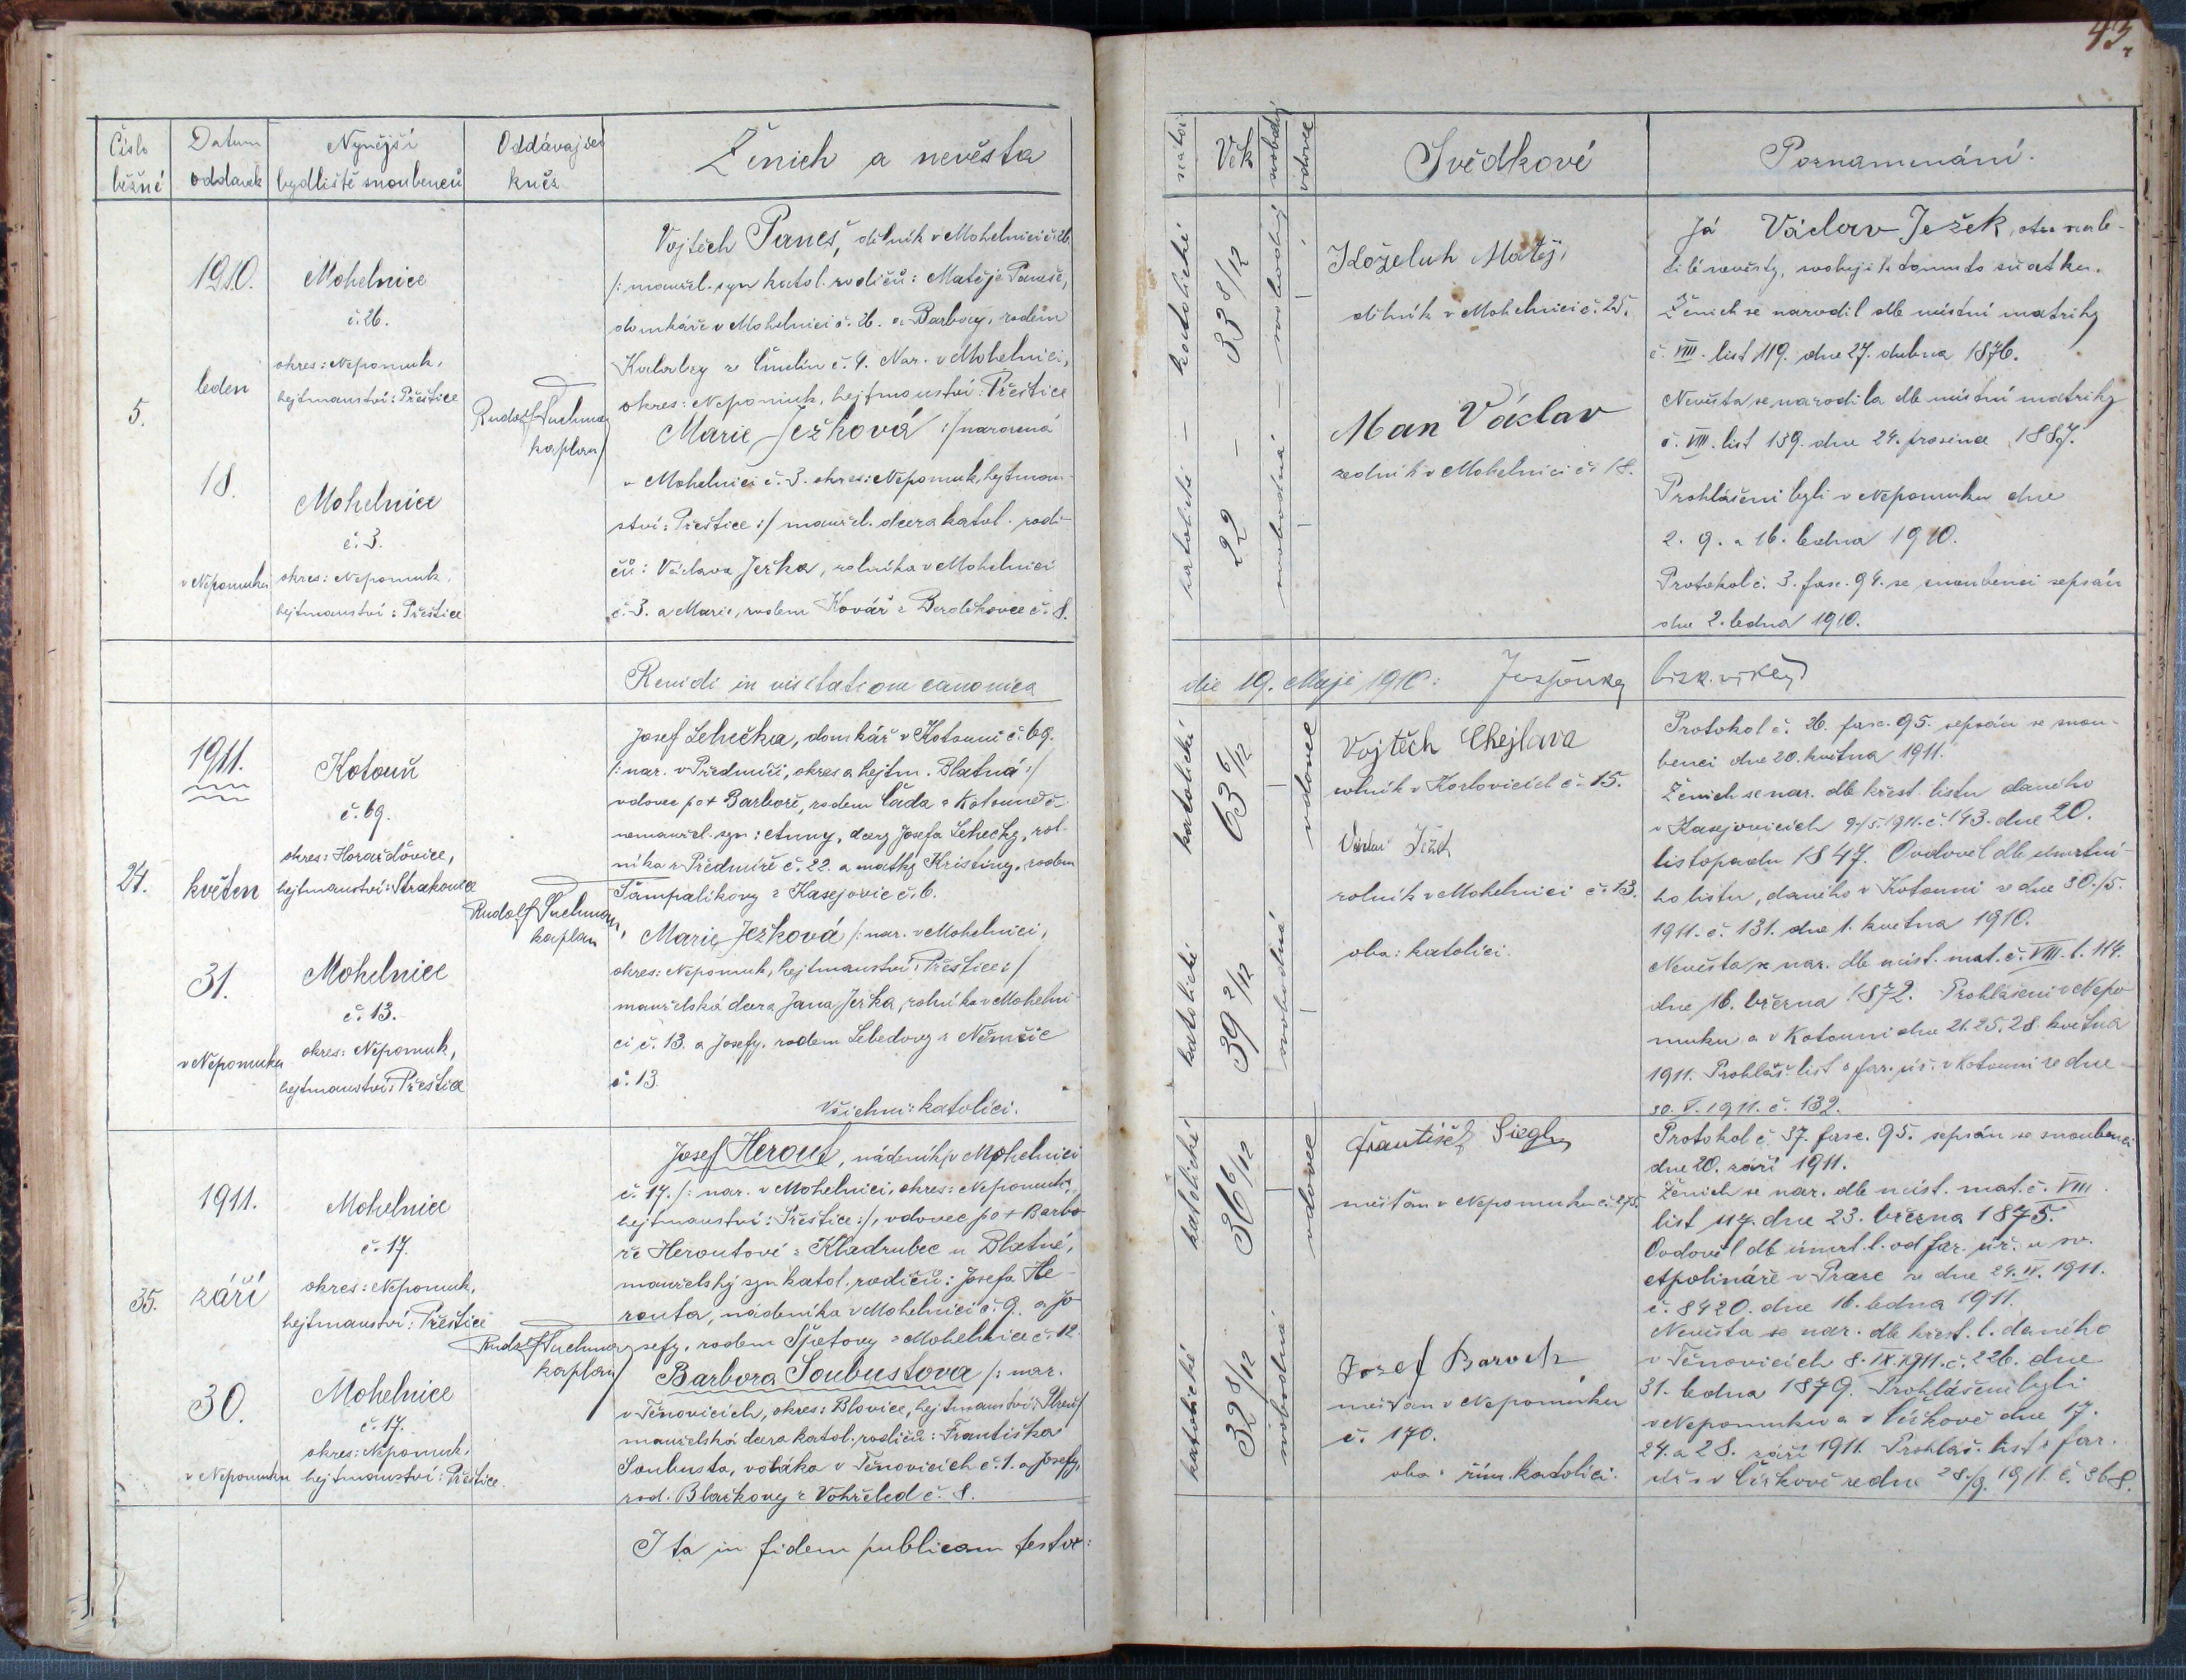 43.
Číslo běžné
Datum oddavek
Nynější bydliště snoubenců
Oddávající kněz
Ženich a nevěsta
Věk
svobodný
vdovec
Svědkové
Poznamenání.
5.
1910.
leden
18.
v Nepomuku
Mohelnice
č. 26.
okres: Nepomuk,
hejtmanství: Přeštice
Mohelnice
č. 3.
okres: Nepomuk,
hejtmanství: Přeštice
Rudolf Suchman
kaplan
Vojtěch Paneš, dělník v Mohelnici č. 26.
/: manžel. syn katol. rodičů: Matěje Paneše,
domkáře v Mohelnici č. 26. a Barbory, rodem
č. 4. Nar. v Mohelnici,
okres: Nepomuk, hejtmanství: Přeštice
Marie Ježková :/ narozená
v Mohelnici č. 3. okres: Nepomuk, hejtman-
ství: Přeštice :/ manžel. dcera katol. rodi-
čů: Václava Ježka, rolníka v Mohelnici
č. 3. a Marie, rodem Kovář z č. 8.
katolické
33 8/12
svobodný
katolické
22
svobodná
Koželuh Matěj,
dělník v Mohelnici č. 25.
Man Václav
zedník v Mohelnici č. 18.
Já Václav Ježek, otec nezle-
tilé nevěsty, svoluji k tomuto sňatku.
Ženich se narodil dle místní matriky
č. VIII. list 119. dne 27. dubna 1876.
Nevěsta se narodila dle místní matriky
č. VIII. list 139. dne 24. prosince 1887.
Prohlášeni byli v Nepomuku dne
2. 9. a 16. ledna 1910.
Protokol č. 3. fasc. 94. se snoubenci sepsán
dne 2. ledna 1910.
Revidi in visitatione canonica
die 19. Maji 1910:
bisk. vikář
24.
1911.
květen
31.
v Nepomuku
Kotouň
č. 69.
okres: Horažďovice,
hejtmanství: Strakonice
Mohelnice
č. 13.
okres: Nepomuk,
hejtmanství: Přeštice
Rudolf Suchman,
kaplan
Josef Lehečka, domkář v Kotouni č. 69.
/: nar. v Předmíři, okres a hejtm. Blatná :/
vdovec po + Barboře, rodem Čada z Kotouně č.
nemanžel. syn: Anny, dcery Josefa Lehečky, rol-
níka z Předmíře č. 22. a matky Kristiny, rodem
z Kasejovic č. 6.
Marie Ježková /: nar. v Mohelnici,
okres: Nepomuk, hejtmanství: Přeštice :/
manželská dcera Jana Ježka, rolníka v Mohelni-
ci č. 13. a Josefy, rodem Lebedovy z Němčic
č. 13.
Všichni: katolíci.
katolické
63 6/12
vdovec
katolické
39 2/12
svobodná
Vojtěch Chejlava
rolník v Kozlovicích č. 15.
Václav Ježek
rolník v Mohelnici č. 13.
oba: katolíci.
Protokol č. 26. fasc. 95. sepsán se snou-
benci dne 20. května 1911.
Ženich se nar. dle křest. listu daného
v Kasejovicích 9./5. 1911. č. 143. dne 20.
listopadu 1847. Ovdověl dle úmrtní-
ho listu, daného v Kotouni ze dne 30./5.
1911. č. 131. dne 1. května 1910.
Nevěsta se nar. dle míst. mat. č. VIII. l. 114.
dne 16. března 1872. Prohlášeni v Nepo-
muku a v Kotouni dne 21. 25. 28. května
1911. Prohláš. list z far. úř. v Kotouni ze dne
30. V. 1911. č. 132.
35.
1911.
září
30.
v Nepomuku
Mohelnice
č. 17.
okres: Nepomuk,
hejtmanství: Přeštice
Mohelnice
č. 17.
okres: Nepomuk,
hejtmanství: Přeštice.
Rudolf Suchman
kaplan
Josef Herout, nádeník v Mohelnici
č. 17. /: nar. v Mohelnici, okres: Nepomuk,
hejtmanství: Přeštice :/, vdovec po + Barbo-
ře Heroutové z Kladrubec u Blatné,
manželský syn katol. rodičů: Josefa He-
routa, nádeníka v Mohelnici č. 9. a Jo-
sefy, rodem Špetovy z Mohelnice č. 12.
Barbora Soubustova /: nar.
v Těnovicích, okres: Blovice, hejtmanství: Plzeň/
manželská dcera katol. rodičů: Františka
Soubusta, vojáka v Těnovicích č. 1. a Josefy,
rod. Blaškovy z Vohřeled č. 8.
katolické
36 6/12
vdovec
katolické
32 8/12
svobodná
František Siegl
měšťan v Nepomuku č. 275.
Josef Baroch
měšťan v Nepomuku
č. 170.
oba: řím. katolíci.
Protokol č. 37. fasc. 95. sepsán se snoubenci
dne 20. září 1911.
Ženich se nar. dle míst. mat. č. VIII
list 117. dne 23. března 1875.
Ovdověl dle úmrt. l. od far. úř. u sv.
Apolináře v Praze ze dne 24. IV. 1911.
č. 8420. dne 16. ledna 1911.
Nevěsta se nar. dle křest. l. daného
v Těnovicích 8. IX. 1911. č. 226. dne
31. ledna 1879. Prohlášeni byli
v Nepomuku a v Čížkově dne 17.
24. a 28. září 1911. Prohláš. list z far.
úř. v Čížkově ze dne 28./9. 1911. č. 368.
Ita in fidem publicam testor: